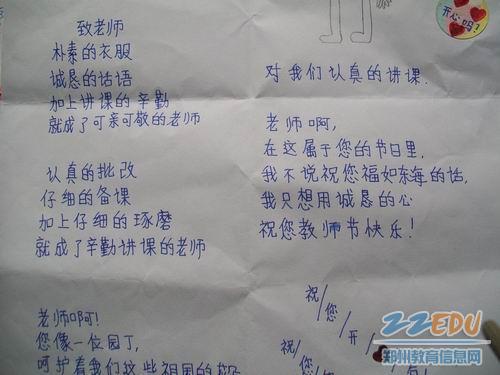 致老师
朴素的衣服
诚恳的话语
加上讲课的辛勤
就成了可亲可敬的老师
认真的批改
仔细的备课
加上仔细的琢磨
就成了辛勤讲课的老师
老师啊!
您像一位园丁,
呵护着我们这些祖国的
开心吗?
对我们认真的讲课.
老师啊,
在这属于您的节日里,
我不说祝您福如东海的话,
我只想用诚恳的心
祝您教师节快乐!
祝/您/开/
祝/您/
22EDU
郑州教育信息网